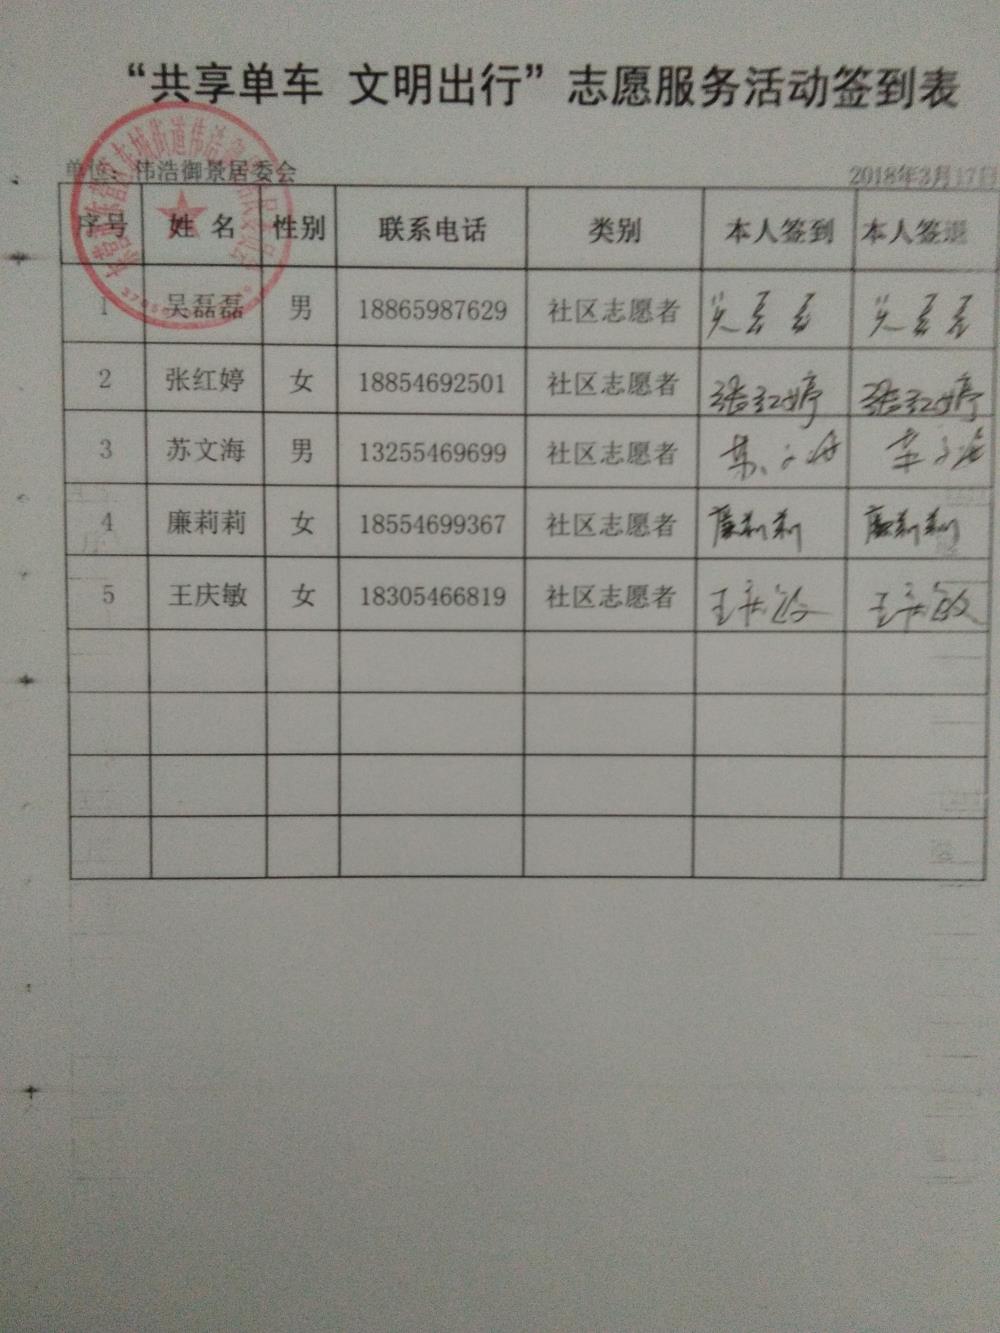 “共享单车 文明出行”志愿服务活动签到表
单位：伟浩御景居委会 2018年3月17日
序号 姓 名 性别 联系电话 类别 本人签到 本人签退
1 吴磊磊 男 18865987629 社区志愿者 吴磊磊 吴磊磊
2 张红婷 女 18854692501 社区志愿者 张红婷 张红婷
3 苏文海 男 13255469699 社区志愿者 苏文海 苏文海
4 廉莉莉 女 18554699367 社区志愿者 廉莉莉 廉莉莉
5 王庆敏 女 18305466819 社区志愿者 王庆敏 王庆敏